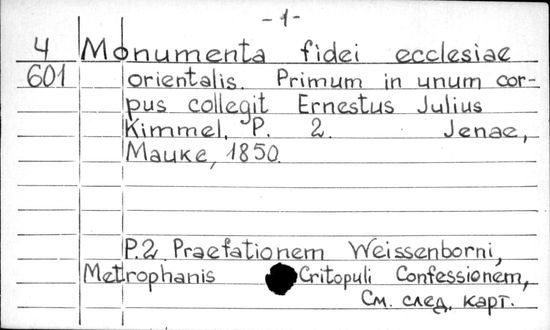 - 1 -
4 Monumenta fidei ecclesiae
601 orientalis. Primum in unum cor-
pus collegit Ernestus Julius
Kimmel. P. 2. Jenae,
Mauke, 1850.
P.2 Praefationem Weissenborni,
Metrophanis Critopuli Confessionem,
См. след. карт.